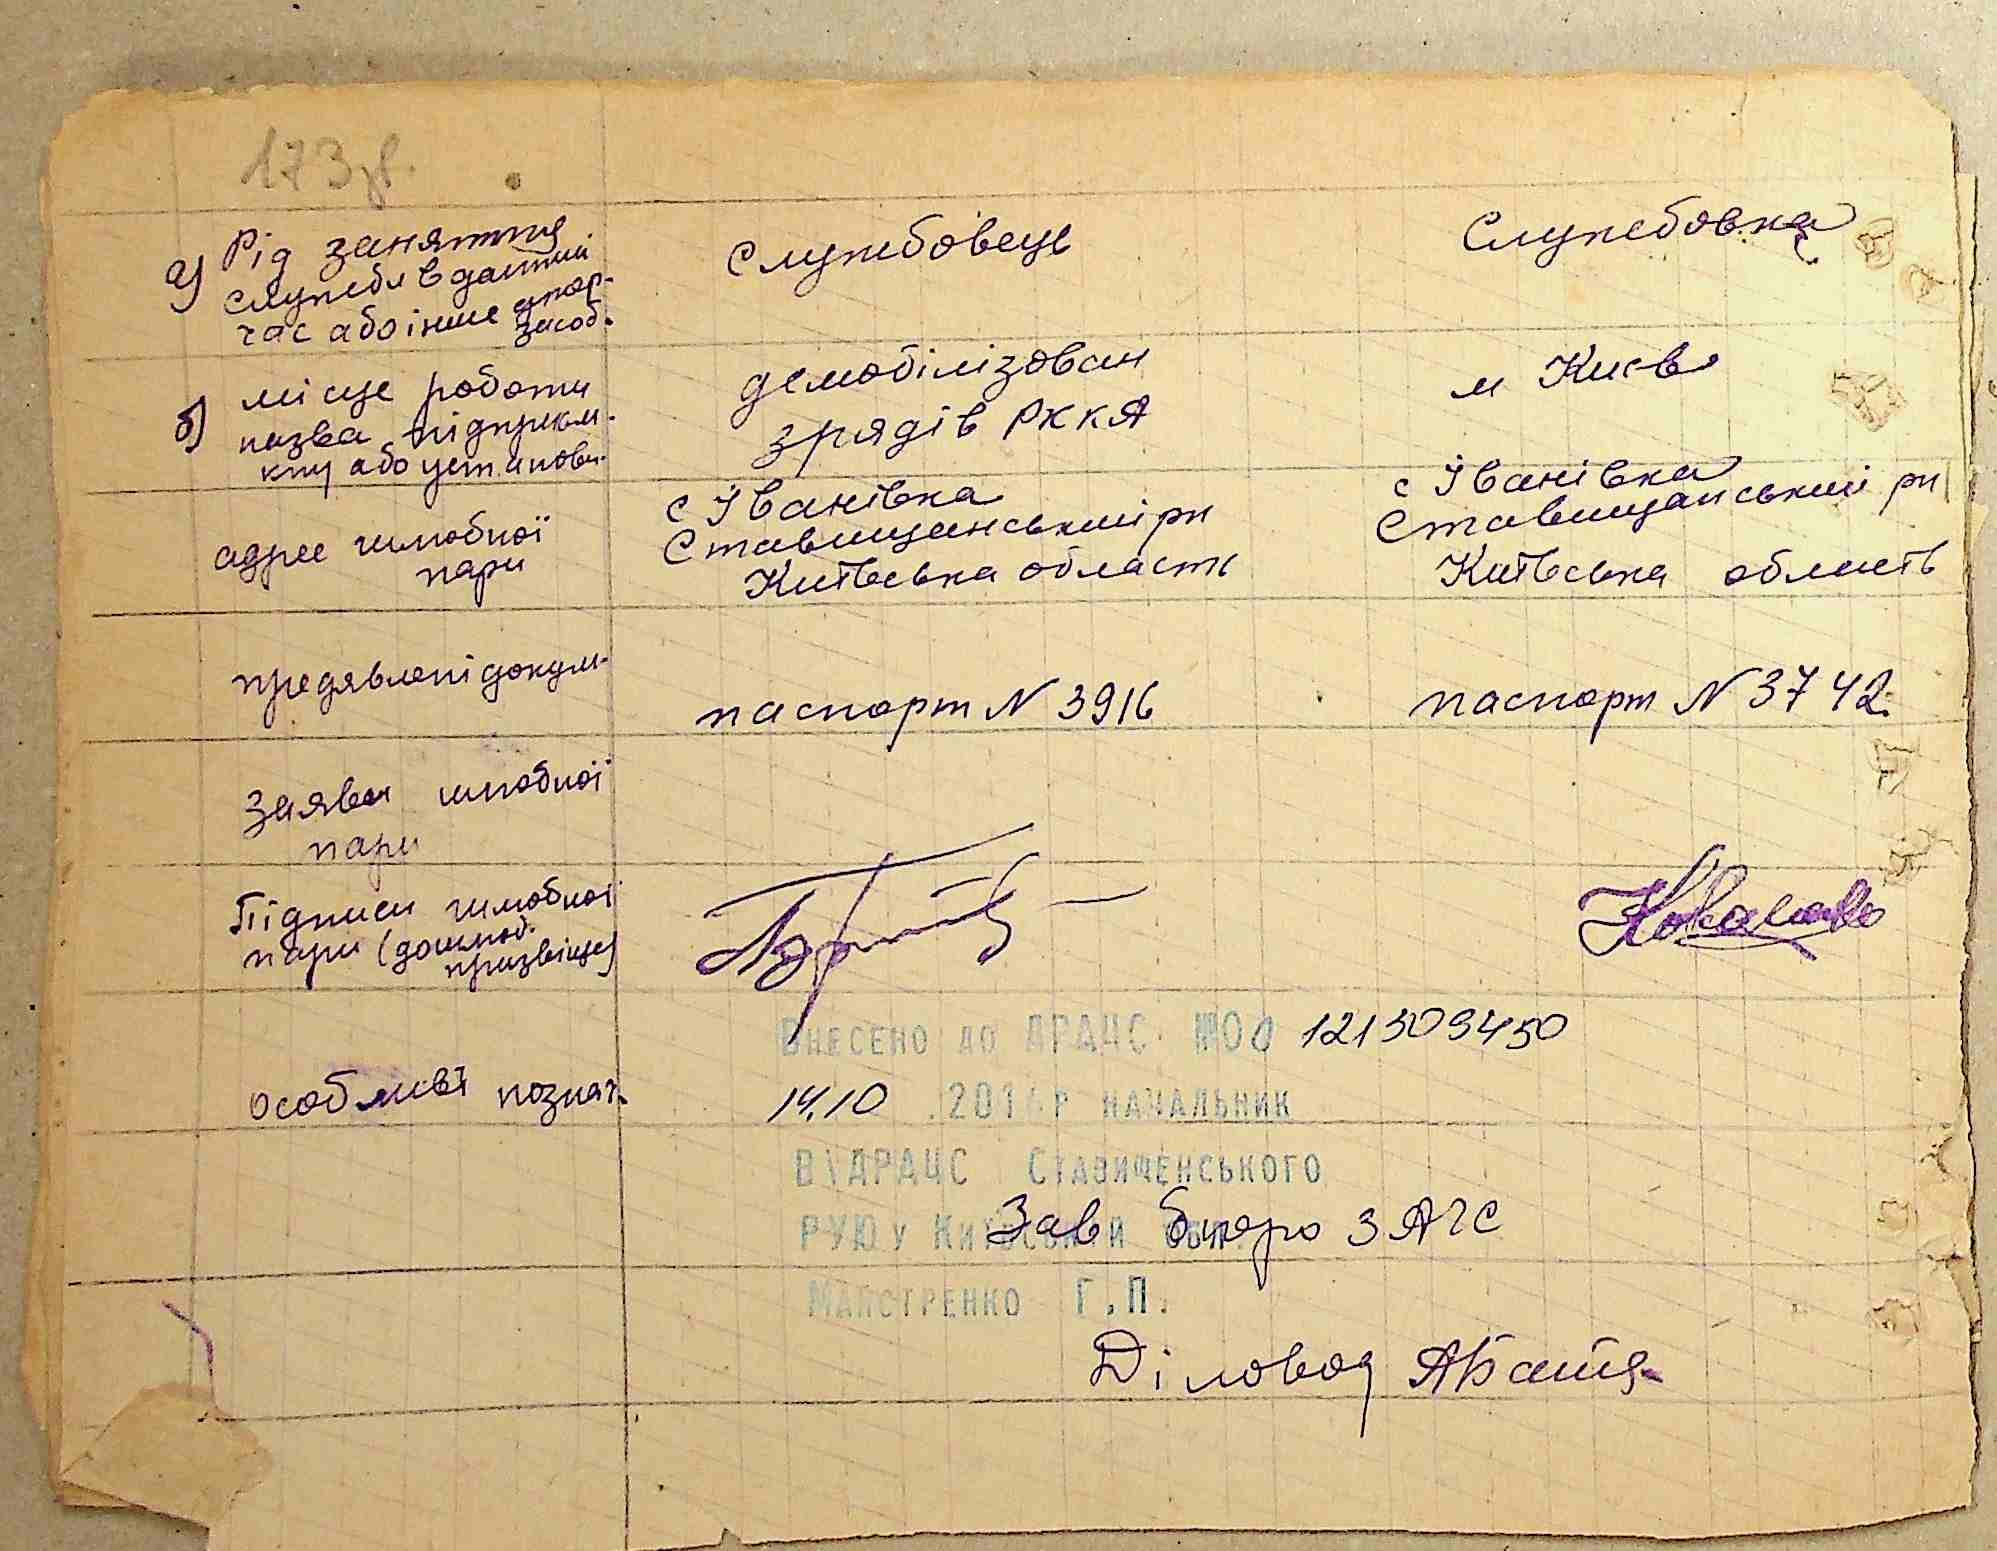 173зв.
а) Рід заняття
служби в даний
час або інше
засоб.
Службовець
Службовка
б) місце роботи
назва підприєм-
кту або установи.
демобілізован
з рядів РККА
м Києв
адрес шлюбної
пари
с Іванівка
Ставищанський рн
Київська область
с Іванівка
Ставищанський рн
Київська область
предявлені докум-
паспорт N 3916
паспорт N 3742.
Заява шлюбної
пари
Підписи шлюбної
пари (дошлюб.
призвіще)
Ковальова
Внесено до ДРАЦС №00 121309450
Особливі познач.
14.10 .2016р начальник
В\ДРАЦС Ставищенського
РУЮ у Київській обл.
Зав бюро ЗАГС
Майстренко Г.П.
Діловод